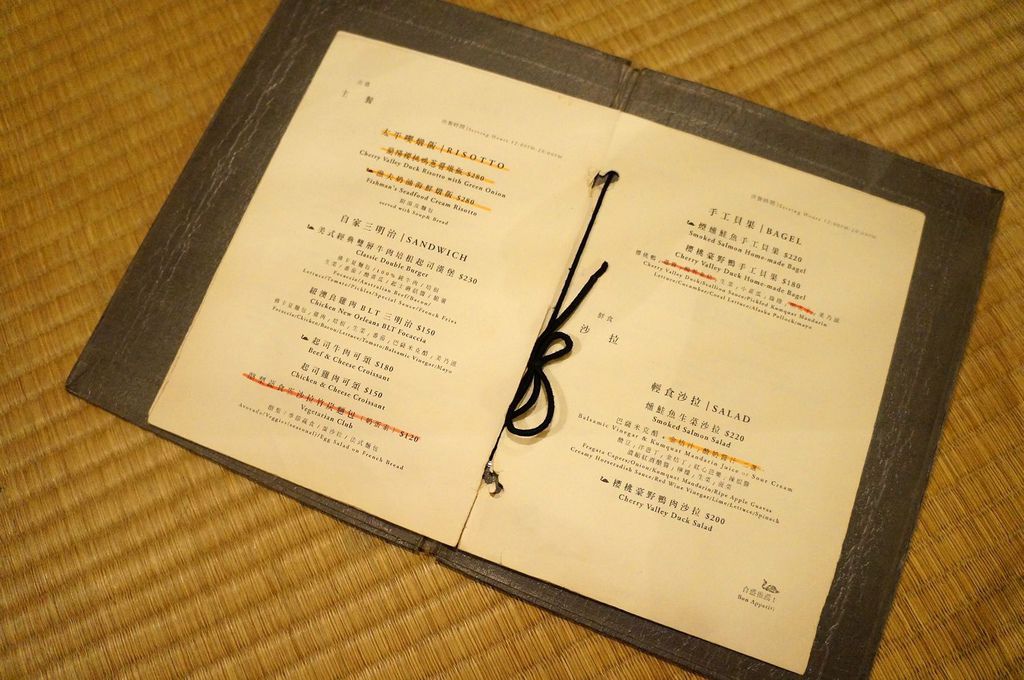 主 餐
供餐時間|Serving Hours 12:00PM-20:00PM
太平碑燉飯|RISOTTO
$280
Cherry Valley Duck Risotto with Green Onion
漁夫奶油海鮮燉飯 $280
Fishman's Seadfood Cream Risotto
附湯及麵包
served with Soup& Bread
自家三明治|SANDWICH
美式經典雙層牛肉培根起司漢堡 $230
Classic Double Burger
Focaccia/Australian Beef/Bacon/
Lettuce/Tomato/Pickles/Special Sauce/French Fries
紐澳良雞肉BLT三明治 $150
Chicken New Orleans BLT Focaccia
Focaccia/Chicken/Bacon/Lettuce/Tomato/Balsamic Vinegar/Mayo
起司牛肉可頌 $180
Beef & Cheese Croissant
起司雞肉可頌 $150
Chicken & Cheese Croissant
$120
Vegetarian Club
酪梨/季節蔬食/蛋沙拉/法式麵包
Avocado/Veggies(seasonal)/Egg Salad on French Bread
供餐時間|Serving Hours 12:00PM-20:00PM
手工貝果|BAGEL
煙燻鮭魚手工貝果 $220
Smoked Salmon Home-made Bagel
櫻桃豪野鴨手工貝果 $180
Cherry Valley Duck Home-made Bagel
Cherry Valley Duck/Scallion Sauce/Pickled Kumquat Mandarin
Lettuce/Cucumber/Coral Lettuce/Alaska Pollock/mayo
鮮食
沙 拉
輕食沙拉|SALAD
燻鮭魚生菜沙拉 $220
Smoked Salmon Salad
Balsamic Vinegar & Kumquat Mandarin Juice or Sour Cream
Fregata Capers/Onion/Kumquat Mandarin/Ripe Apple Guavas
Creamy Horseradish Sauce/Red Wine Vinegar/Lime/Lettuce/Spinach
櫻桃豪野鴨肉沙拉 $200
Cherry Valley Duck Salad
Bon Appetit!